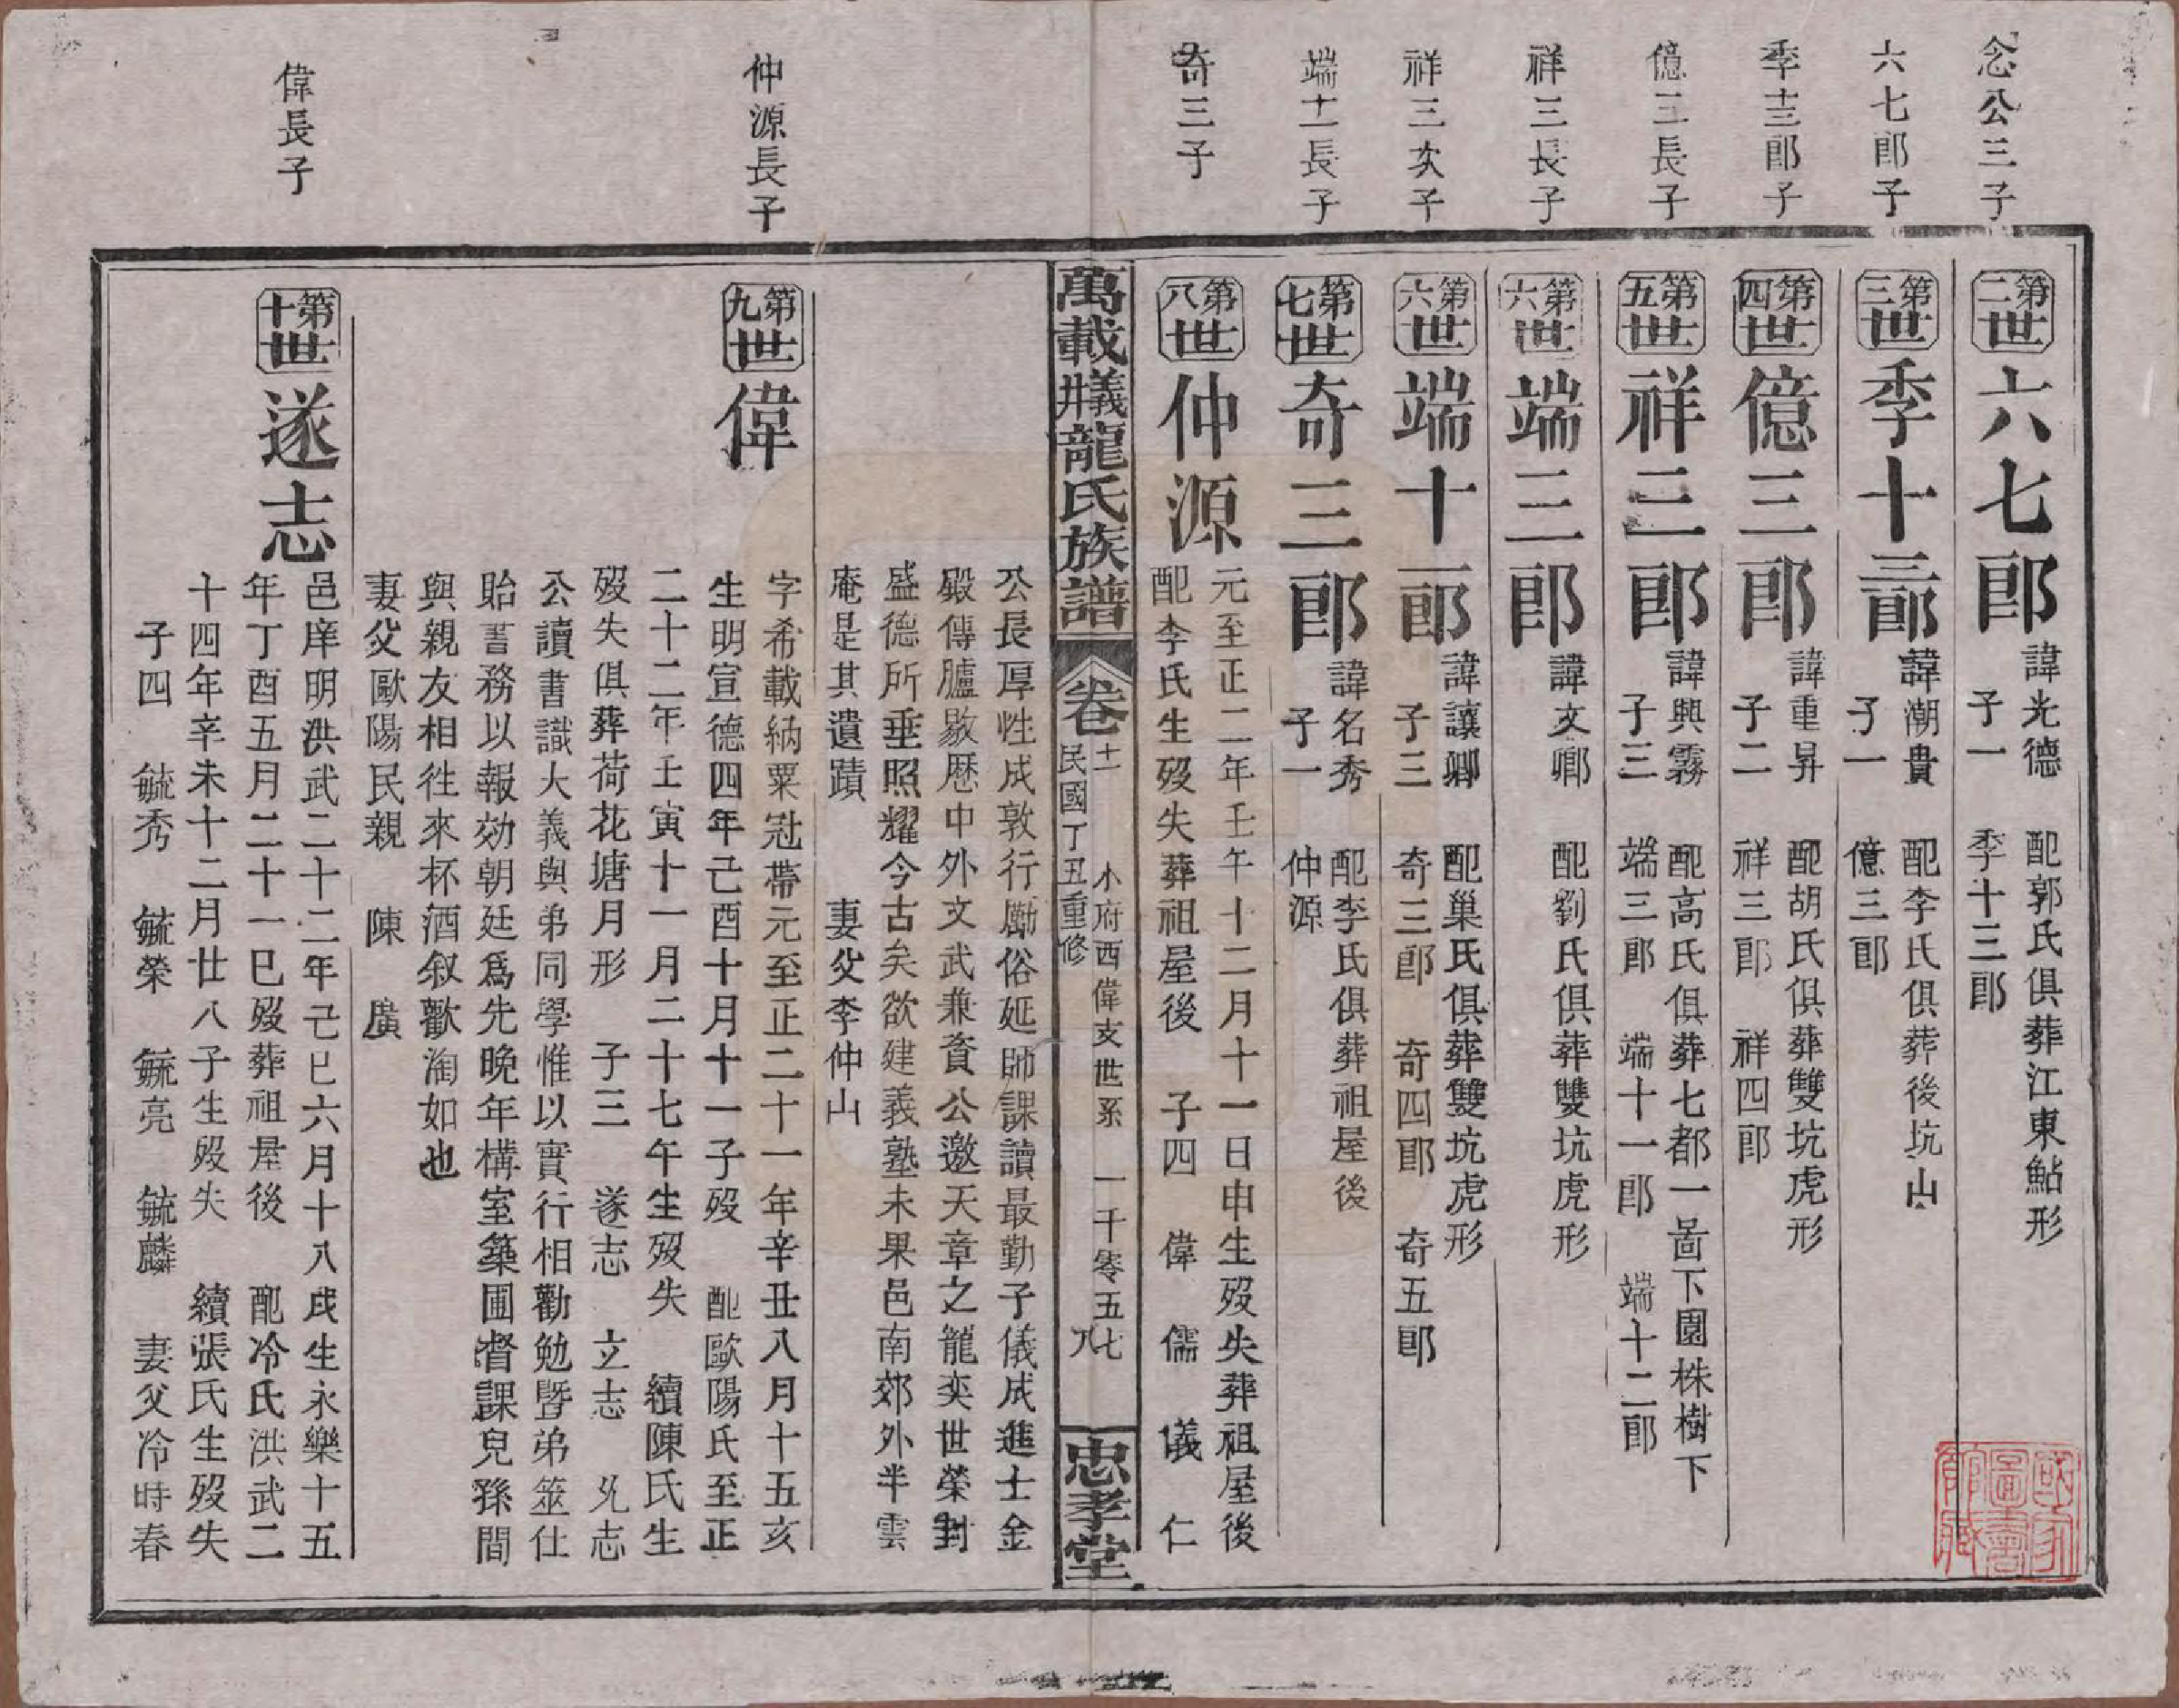 念公三子
第二世
六七郎
諱光德　配郭氏俱葬江東鮎形
子一　季十三郎
六七郎子
第三世
季十三郎
諱潮貴　配李氏俱葬後坑山
子一　億三郎
季十三郎子
第四世
億三郎
諱重昇　配胡氏俱葬雙坑虎形
子二　祥三郎　祥四郎
億三長子
第五世
祥三郎
諱興霧　配高氏俱葬七都一啚下園株樹下
子三　端三郎　端十一郎　端十二郎
祥三長子
第六世
端三郎
諱文卿　配劉氏俱葬雙坑虎形
祥三次子
第六世
端十一郎
諱讓卿　配巢氏俱葬雙坑虎形
子三　奇三郎　奇四郎　奇五郎
端十一長子
第七世
奇三郎
諱名秀　配李氏俱葬祖屋後
子一　仲源
奇三子
第八世
仲源
元至正二年壬午十二月十一日申生歿失葬祖屋後
配李氏生歿失葬祖屋後　子四　偉　儒　儀　仁
萬載井義龍氏族譜
卷十一
民國丁丑重修
小府西偉支世系　一千零五七
八
忠孝堂
公長厚性成敦行勵俗延師課讀最勤子儀成進士金
殿傳臚敭歷中外文武兼資公邀天章之龍奕世榮封
盛德所垂照耀今古矣欲建義塾未果邑南郊外半雲
庵是其遺蹟　妻父李仲山
仲源長子
第九世
偉
字希載納粟冠帶元至正二十一年辛丑八月十五亥
生明宣德四年己酉十月十一子歿　配歐陽氏至正
二十二年壬寅十一月二十七午生歿失　續陳氏生
歿失俱葬荷花塘月形　子三　遂志　立志　允志
公讀書識大義與弟同學惟以實行相勸勉暨弟筮仕
貽書務以報効朝廷爲先晚年構室築圃督課兒孫間
與親友相往來杯酒叙歡淘如也
妻父歐陽民親　陳　廣
偉長子
第十世
遂志
邑庠明洪武二十二年己巳六月十八戌生永樂十五
年丁酉五月二十一巳歿葬祖屋後　配冷氏洪武二
十四年辛未十二月廿八子生歿失　續張氏生歿失
子四　毓秀　毓榮　毓亮　毓麟　妻父冷時春
國家圖書館藏